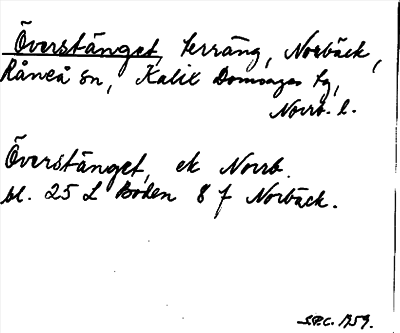 Överstänget, terräng, Norbäck,
Råneå sn, Kalix Domsagas tg,
Norrb. l.
Överstänget, ek Norrb.
bl. 25 L Boden 8 f Norbäck.
S.P.C. 1959.